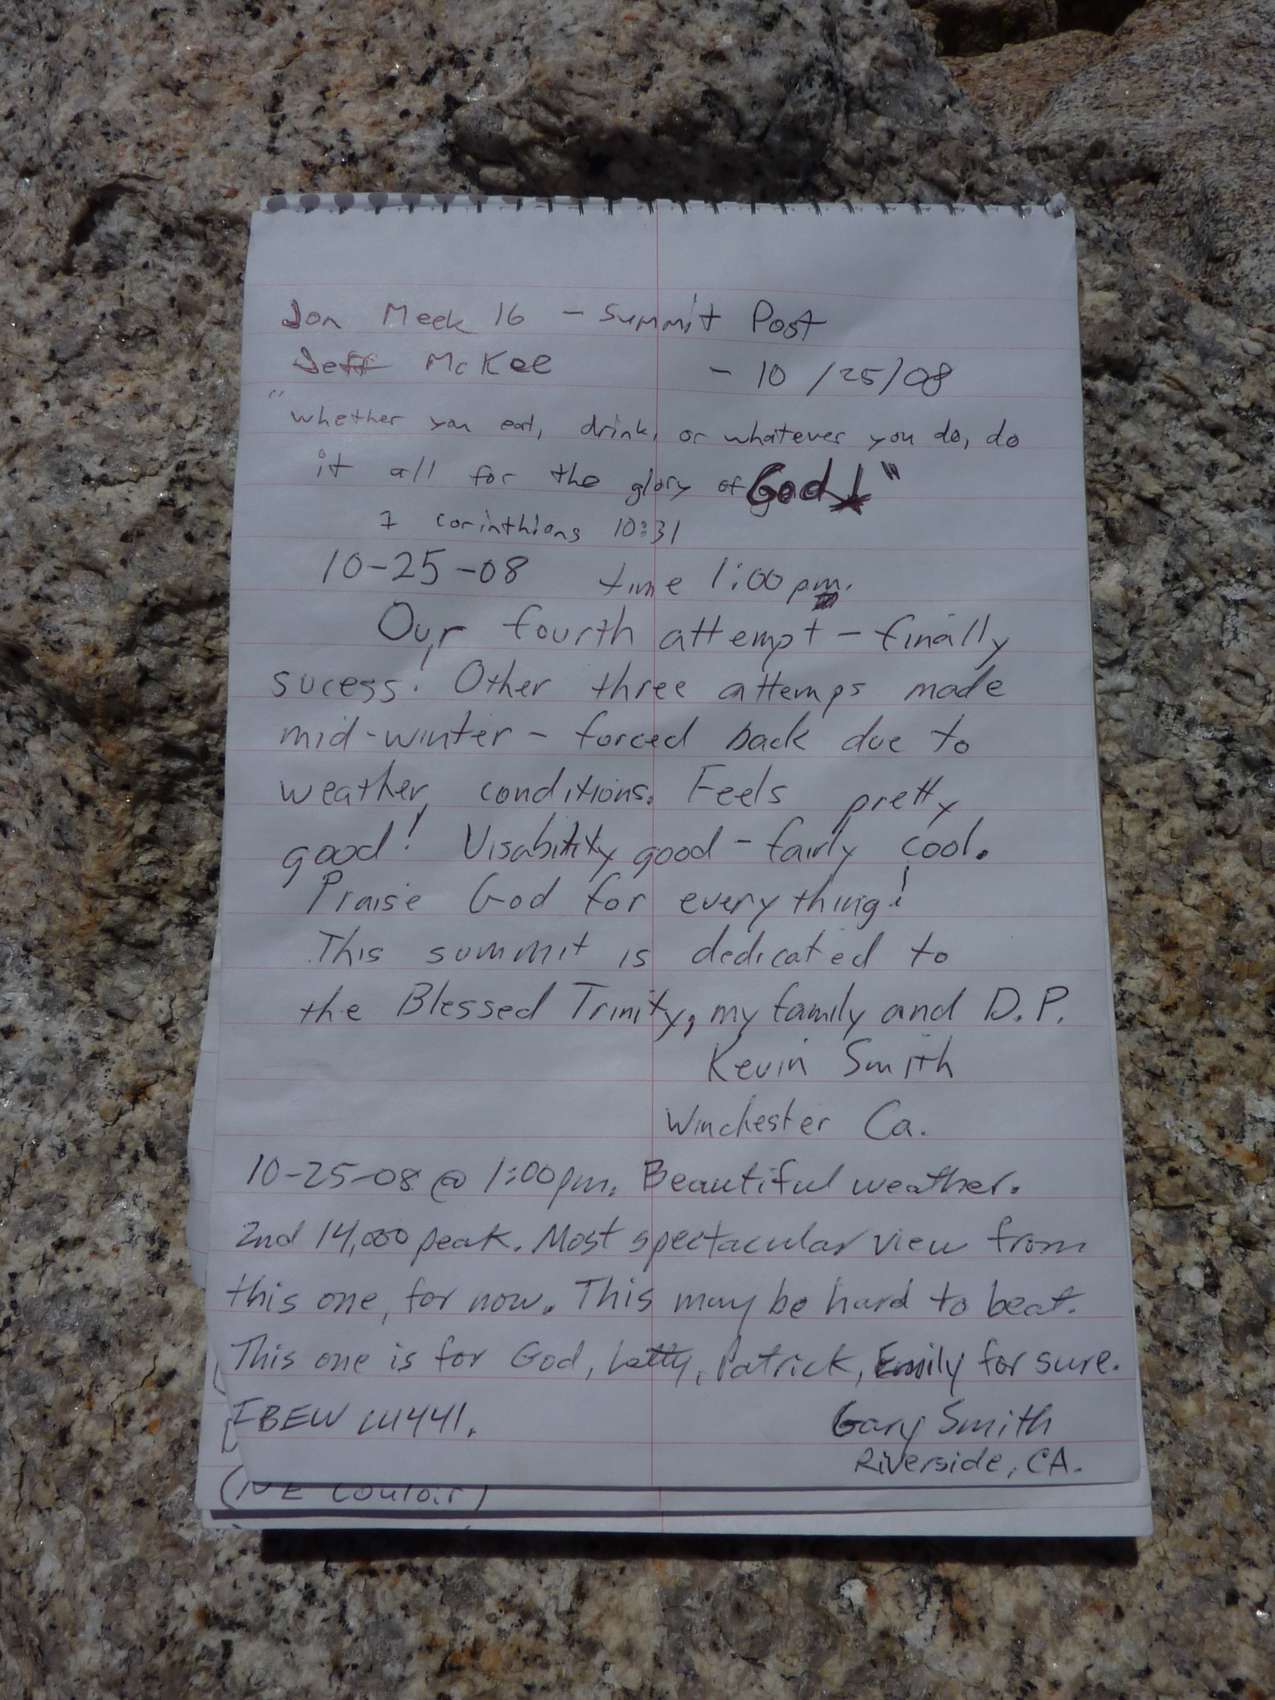 Jon Meek 16 - Summit Post
Jeff McKee - 10/25/08
"whether you eat, drink, or whatever you do, do
it all for the glory of God!"
1 corinthians 10:31
10-25-08 time 1:00 pm.
Our fourth attempt - finally
sucess! Other three attemps made
mid-winter - forced back due to
weather conditions. Feels pretty
good! Visability good - fairly cool.
Praise God for everything!
This summit is dedicated to
the Blessed Trinity, my family and D.P.
Kevin Smith
Winchester Ca.
10-25-08 @ 1:00pm. Beautiful weather.
2nd 14,000 peak. Most spectacular view from
this one, for now. This may be hard to beat.
This one is for God, Letty, Patrick, Emily for sure.
IBEW LU441. Gary Smith
Riverside, CA.
(NE Couloir)